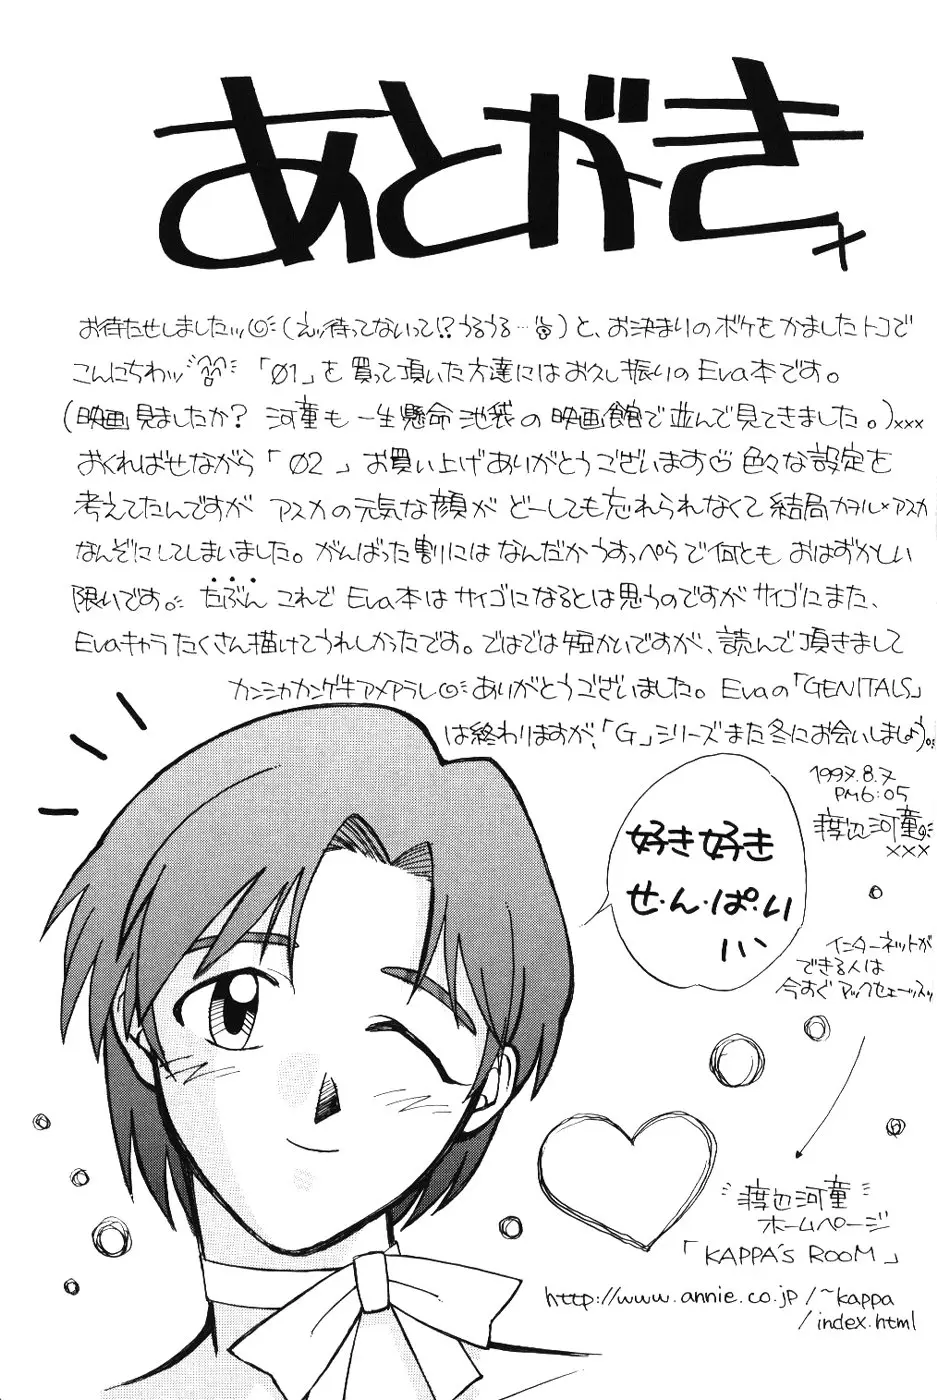 あとがき
お待たせしましたッ(えッ待ってないって!?うるうる…)と、お決まりのボケをかましたトコで
こんにちわッ「01」を買って頂いた方達にはお久し振りのEva本です。
(映画見ましたか? 河童も一生懸命池袋の映画館で並んで見てきました。)xxx
おくればせながら「02」お買い上げありがとうございます 色々な設定を
考えてたんですが アスカの元気な顔が どーしても忘れられなくて結局カヲル×アスカ
なんぞにしてしまいました。がんばった割りにはなんだかうすっぺらで何とも おはずかしい
限いです。たぶん これで Eva本はサイゴになるとは思うのですがサイゴにまた、
Evaキャラたくさん描けてうれしかったです。ではでは短かいですが、読んで頂きまして
カンシャカンゲキアメアラレ ありがとうございました。Evaの「GENITALS」
は終わりますが、「G」シリーズまた冬にお会いしましょう。
1997.8.7
PM6:05
河童
xxx
好き好き
せ・ん・ぱ・い
インターネットが
できる人は
今すぐ アックセェーッスッ
河童
ホームページ
「KAPPA'S ROOM」
http://www.annie.co.jp/~kappa
/index.html